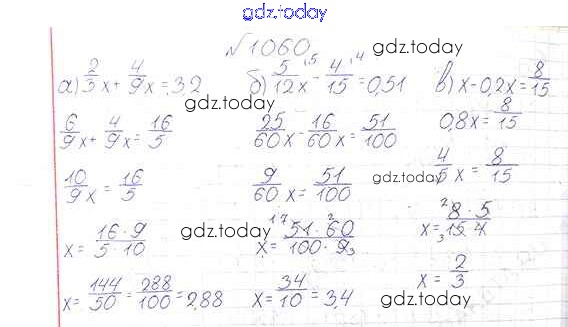 gdz.today
№1060. gdz.today
а) 2/3 x + 4/9 x = 3,2
gdz.today
6/9 x + 4/9 x = 16/5
10/9 x = 16/5
x = 16·9/5·10
gdz.today
x = 144/50 = 288/100 = 2,88
б) 5/12 x - 4/15 = 0,51
25/60 x - 16/60 x = 51/100
9/60 x = 51/100
x = 51·60/100·9
x = 34/10 = 3,4
в) x - 0,2x = 8/15
0,8x = 8/15
gdz.today
4/5 x = 8/15
x = 8·5/15·4
x = 2/3
gdz.today